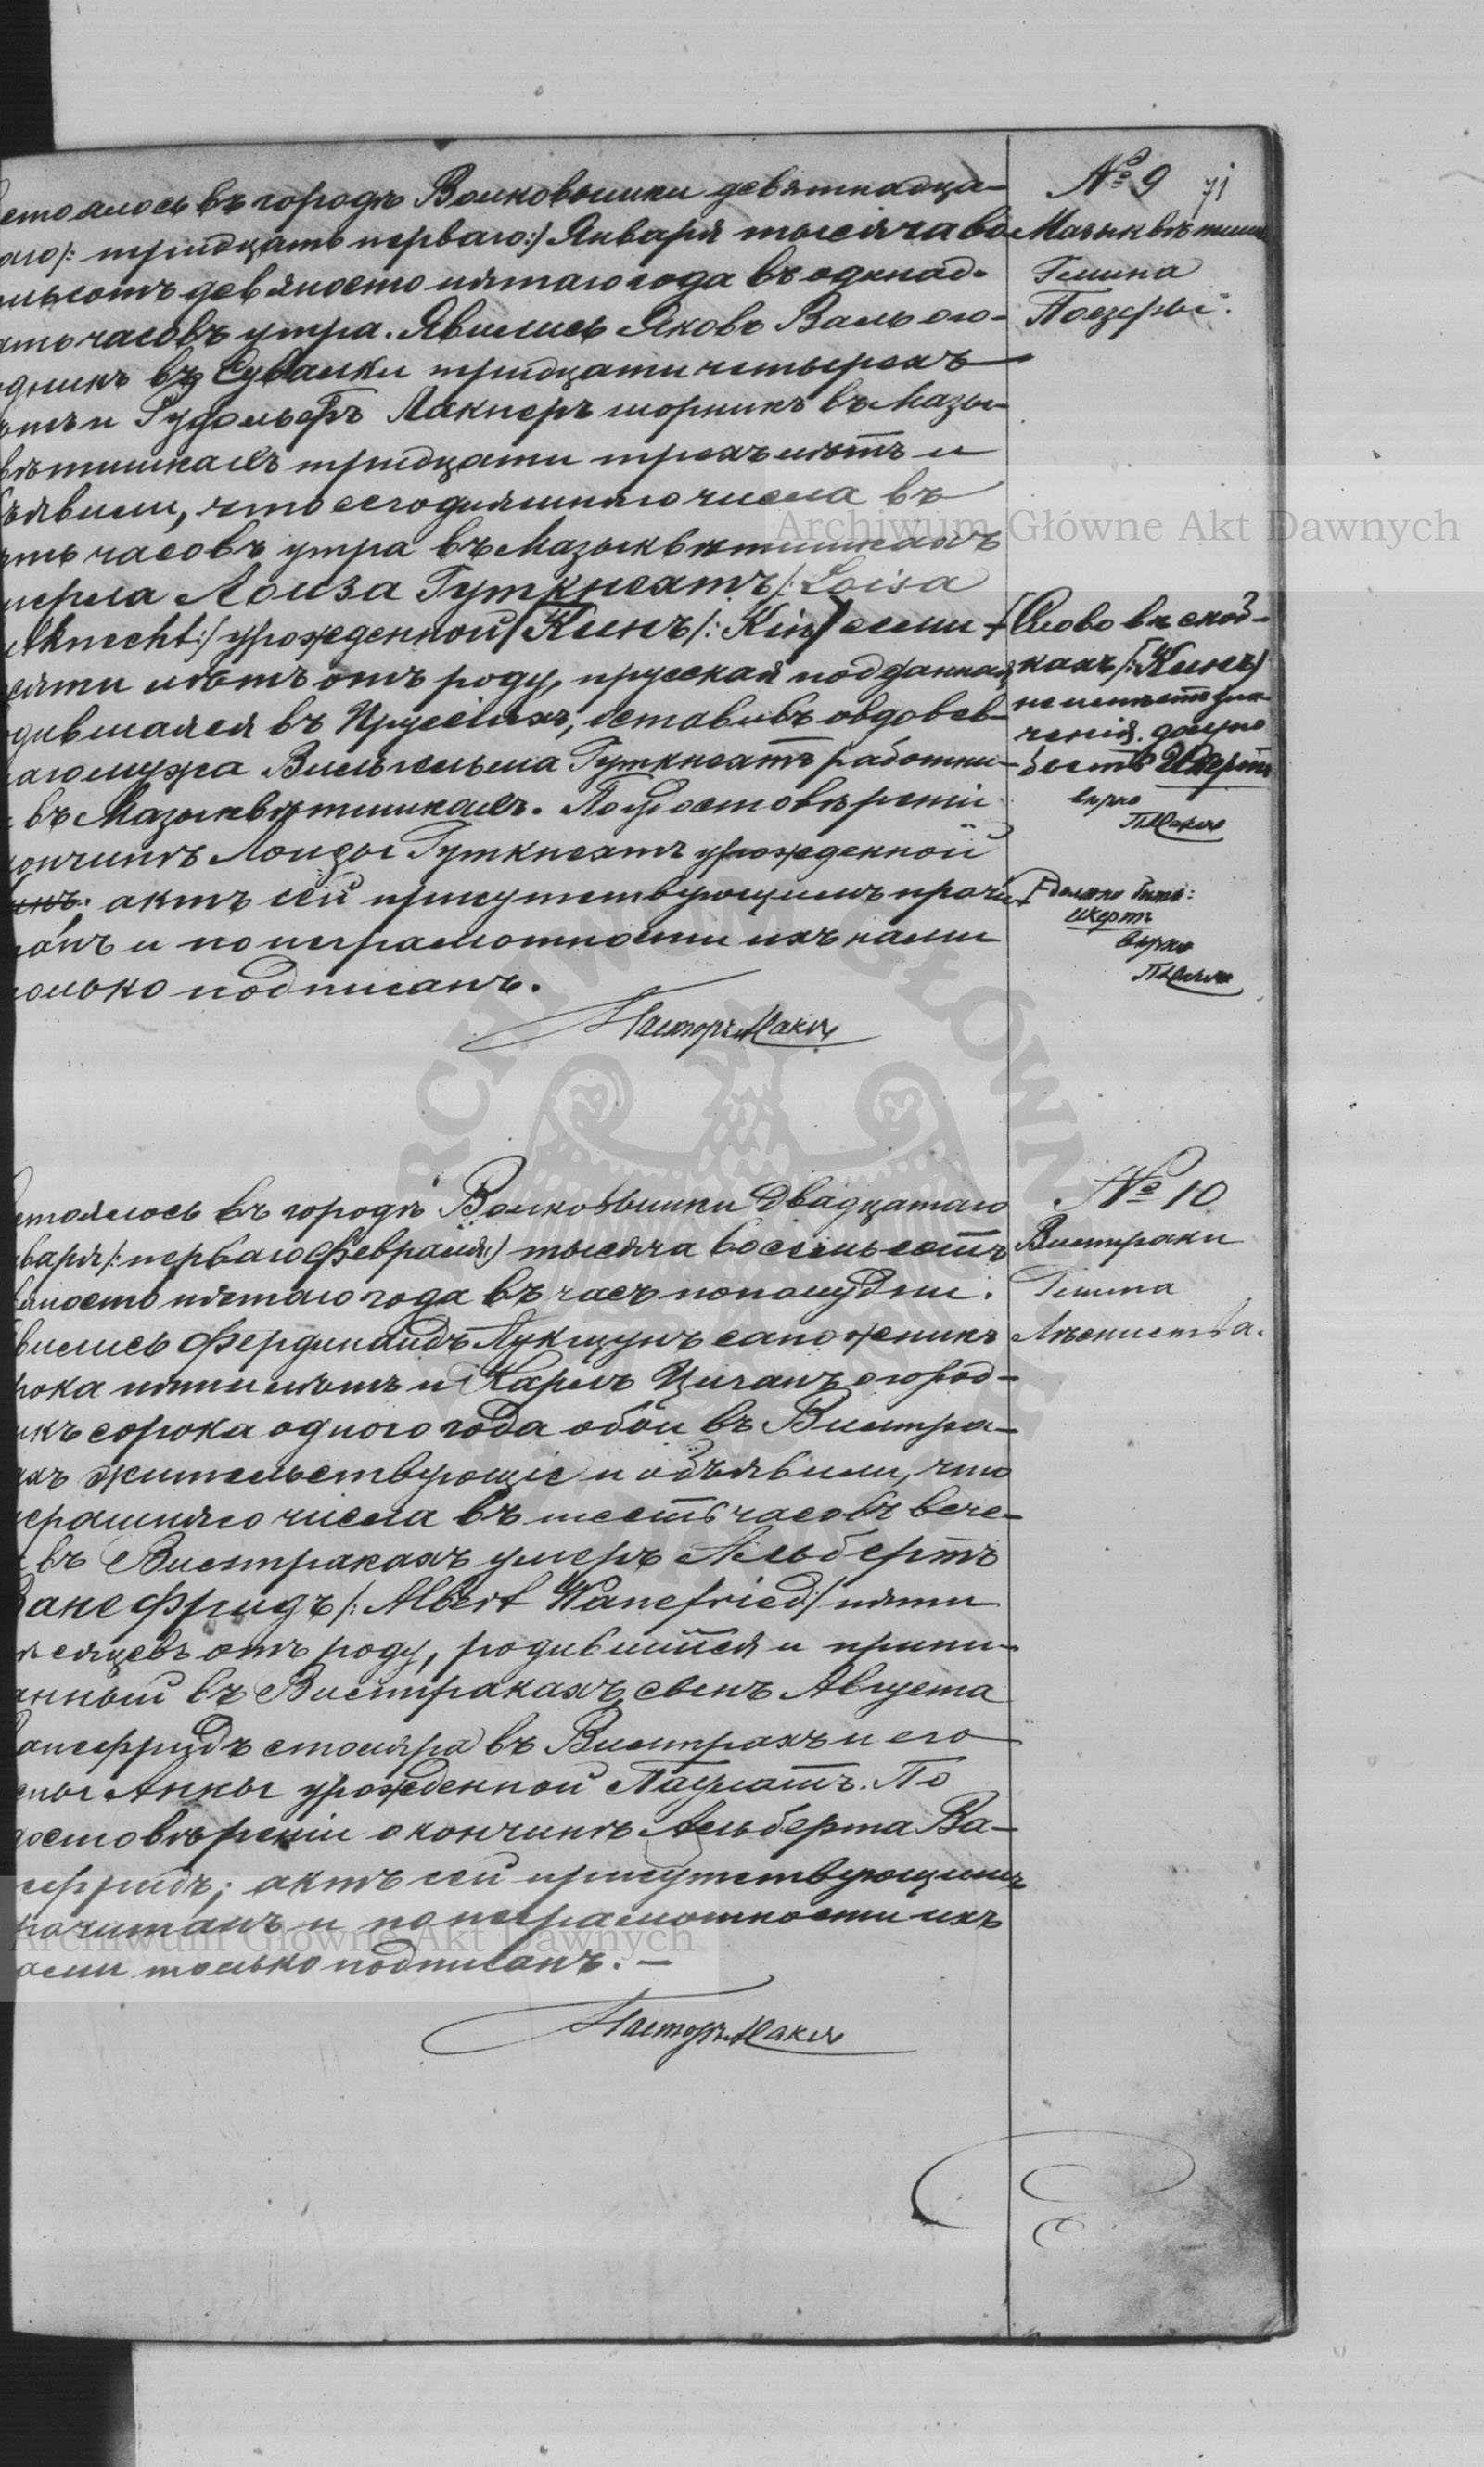 № 9
71
стоялось въ городѣ Волковышки девятнадца-
аго /: тридцать перваго :/ Января тысяча во
мьсотъ девяносто пятаго года въ одинад-
ать часовъ утра. Явились Яковъ Валь ого-
дникъ въ Сувалки тридцати четырехъ
ѣтъ и Рудольфъ Лакнеръ шорникъ въ Мазы-
вѣтишкахъ тридцати трехъ лѣтъ и
ъявили, что сегодняшняго числа въ
ять часовъ утра въ Мазыквѣтишкахъ
мерла Лоиза Гуткнехтъ /: Loisa
utknecht :/ урожденной [Кинъ /: Kin] семи-
сяти лѣтъ отъ роду, прусская подданная,
дившаяся въ Пруссіяхъ, оставивъ овдовѣв-
аго мужа Вильгельма Гуткнехтъ работни-
въ Мазыквѣтишкахъ. По удостовѣреніи
ончинѣ Лоизы Гуткнехтъ урожденной
инъ; актъ сей присутствующимъ прочи
анъ и по неграмотности ихъ нами
олько подписанъ.
Пасторъ
Мазыквѣтишки
Гмина
Поезеры.
Слово въ скоб-
кахъ [: Кинъ]
не имѣетъ зна-
ченія. должно
быть Икертъ
вѣрно
должно быть:
Икертъ
вѣрно
№ 10
стоялось въ городѣ Волковышки двадцатаго
нваря /: перваго Февраля :/ тысяча восемьсотъ
вяносто пятаго года въ часъ пополудни.
вились Фердинандъ Лукшунъ сапожникъ
рока пяти лѣтъ и Карлъ Циганъ огород-
икъ сорока одного года обои въ Вистра-
ахъ жительствующіе и объявили, что
черашняго числа въ шесть часовъ вече-
въ Вистракахъ умеръ Альбертъ
Ванефридъ /: Albert Wanefried :/ пяти
ѣсяцевъ отъ роду, родившійся и припи-
анный въ Вистракахъ, сынъ Августа
Ванефридъ столяра въ Вистрахъ и его
ены Анны урожденной Паулатъ. По
достовѣреніи о кончинѣ Альберта Ва-
ефридъ; актъ сей присутствующимъ
рочитанъ и по неграмотности ихъ
ами только подписанъ. —
Пасторъ
Вистраки
Гмина
Archiwum Główne Akt Dawnych
Archiwum Główne Akt Dawnych